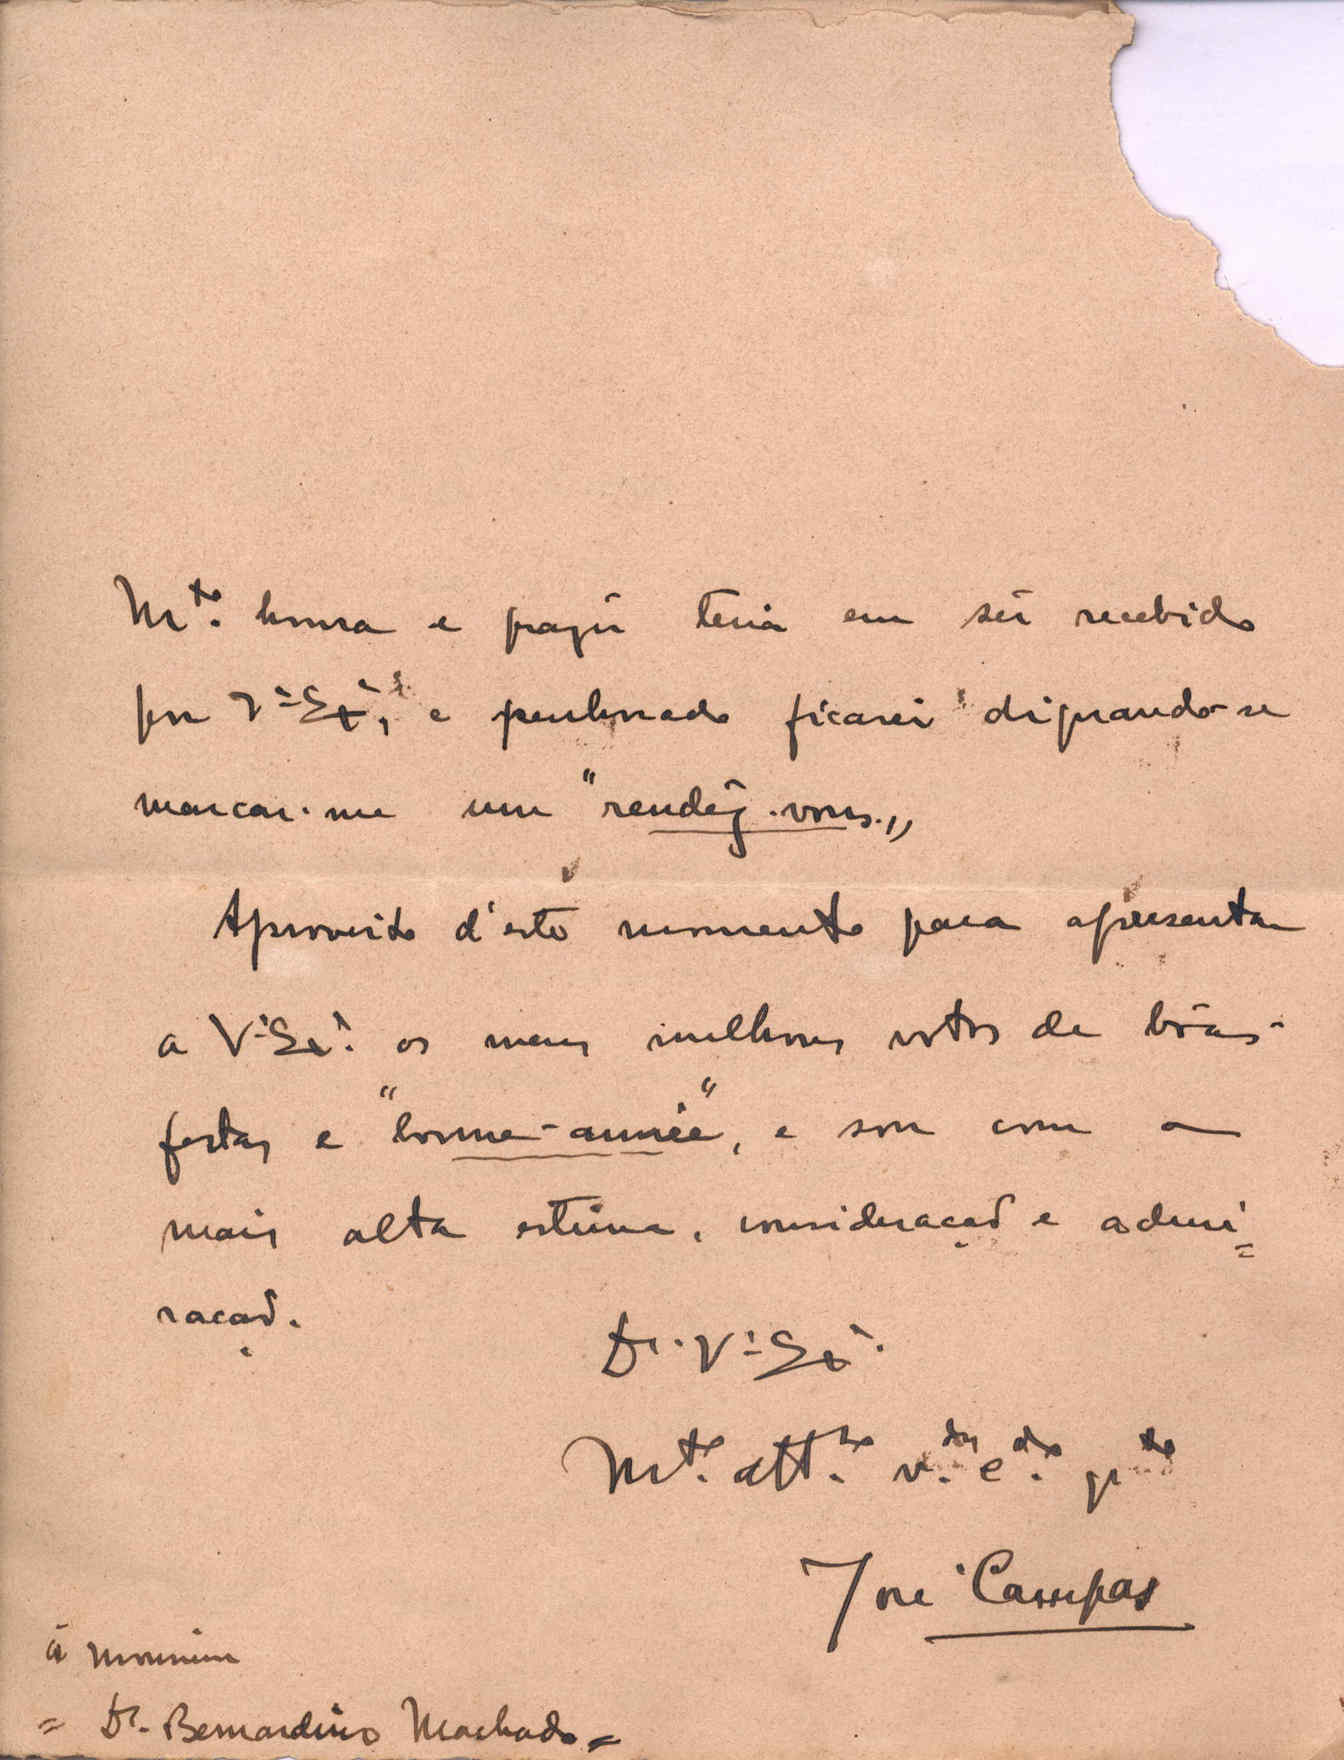 Mto. honra e prazer teria em ser recebido
por Vª Exª, e penhorado ficarei dignando-se
marcar-me um "rendez-vous.„
Aproveito d'este momento para apresentar
a Vª Exª. os meus melhores votos de bôas-
festas e "bonne-année", e sou com a
mais alta estima, consideração e admi=
ração.
De. Vª Exª.
Mto. attto. vdor. e cdo. gto
José Campas
à monsieur
= Dr. Bernardino Machado =